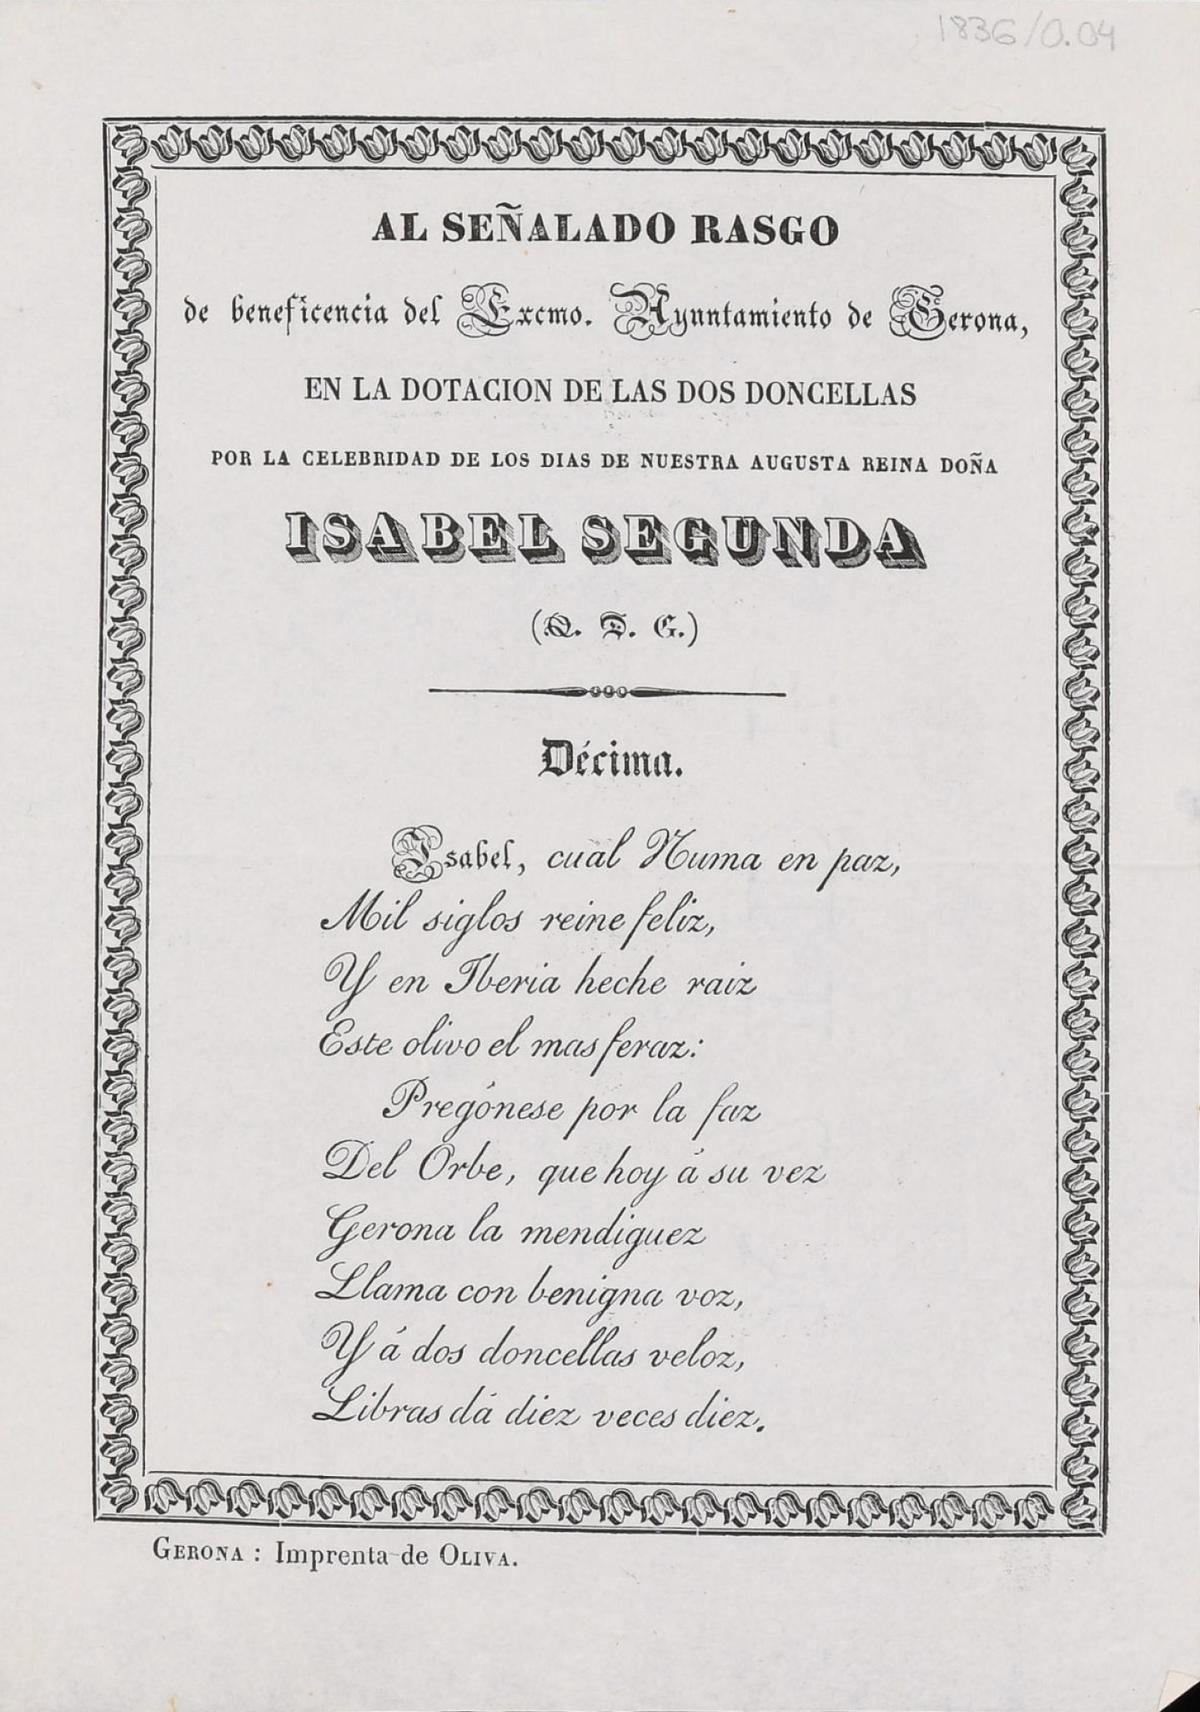 1836/0.04
AL SEÑALADO RASGO
de beneficencia del Excmo. Ayuntamiento de Gerona,
EN LA DOTACION DE LAS DOS DONCELLAS
POR LA CELEBRIDAD DE LOS DIAS DE NUESTRA AUGUSTA REINA DOÑA
ISABEL SEGUNDA
(Q. D. G.)
Décima.
Isabel, cual Numa en paz,
Mil siglos reine feliz,
Y en Iberia heche raiz
Este olivo el mas feraz:
Pregónese por la faz
Del Orbe, que hoy á su vez
Gerona la mendiguez
Llama con benigna voz,
Y á dos doncellas veloz,
Libras dá diez veces diez.
GERONA : Imprenta de OLIVA.